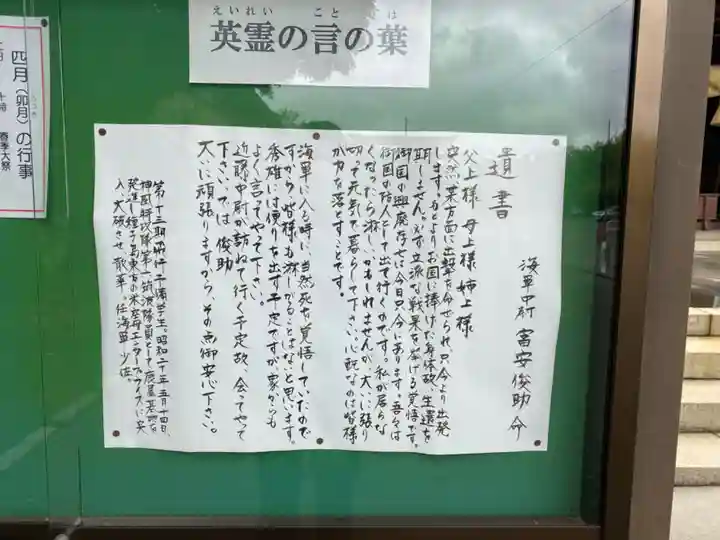 えいれい こと は
英霊の言の葉
遺書
海軍中尉 富安俊助命
父上様 母上様 姉上様
突然某方面に出撃を命ぜられ、只今より出発
します。もとよりお国に捧げた身体故、生還を
期しません。必ず立派な戦果を挙げる覚悟です。
御国の興廃存亡は今日只今にあります。吾々は
御国の防人として出て行くのです。私が居らな
くなったら淋しいかもしれませんが、大いに張り
切って元気で暮らして下さい。心配なのは皆様
が力を落とすことです。
海軍に入る時に当然死を覚悟していたので
すから、皆様も淋しがることはないと思います。
秀雄には便りを出す予定ですが、家からも
よく言ってやって下さい。
近藤中尉が訪ねて行く予定故、会ってやって
下さい。では 俊助
大いに頑張りますから、その点御安心下さい。
第十三期飛行予備学生。昭和二十年五月十四日、
神風特攻隊第六筑波隊員として鹿屋基地を
発進、種子島東方の米空母エンタープライズに突
入、大破させ、散華。任海軍少佐。
四月(卯月)の行事
春季大祭